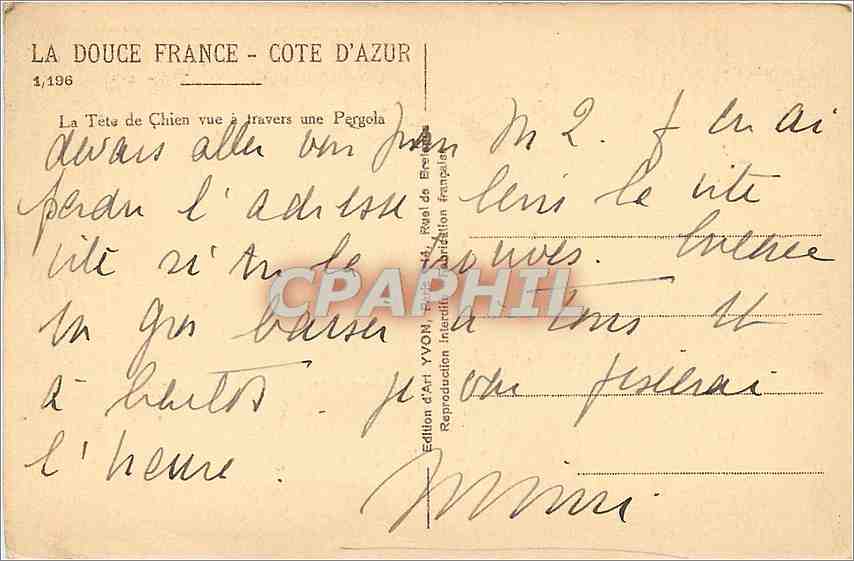 LA DOUCE FRANCE - COTE D'AZUR
1/196
La Tete de Chien vue à travers une Pergola
devais aller voir M 2. J en ai
perdu l'adresse la vite
vite si tu la trouves.
un gros baiser à tous et
à bientôt. je vous
l'heure.
Mimi
Edition d'Art YVON, Paris
Reproduction Interdite Fabrication française
CPAPHIL